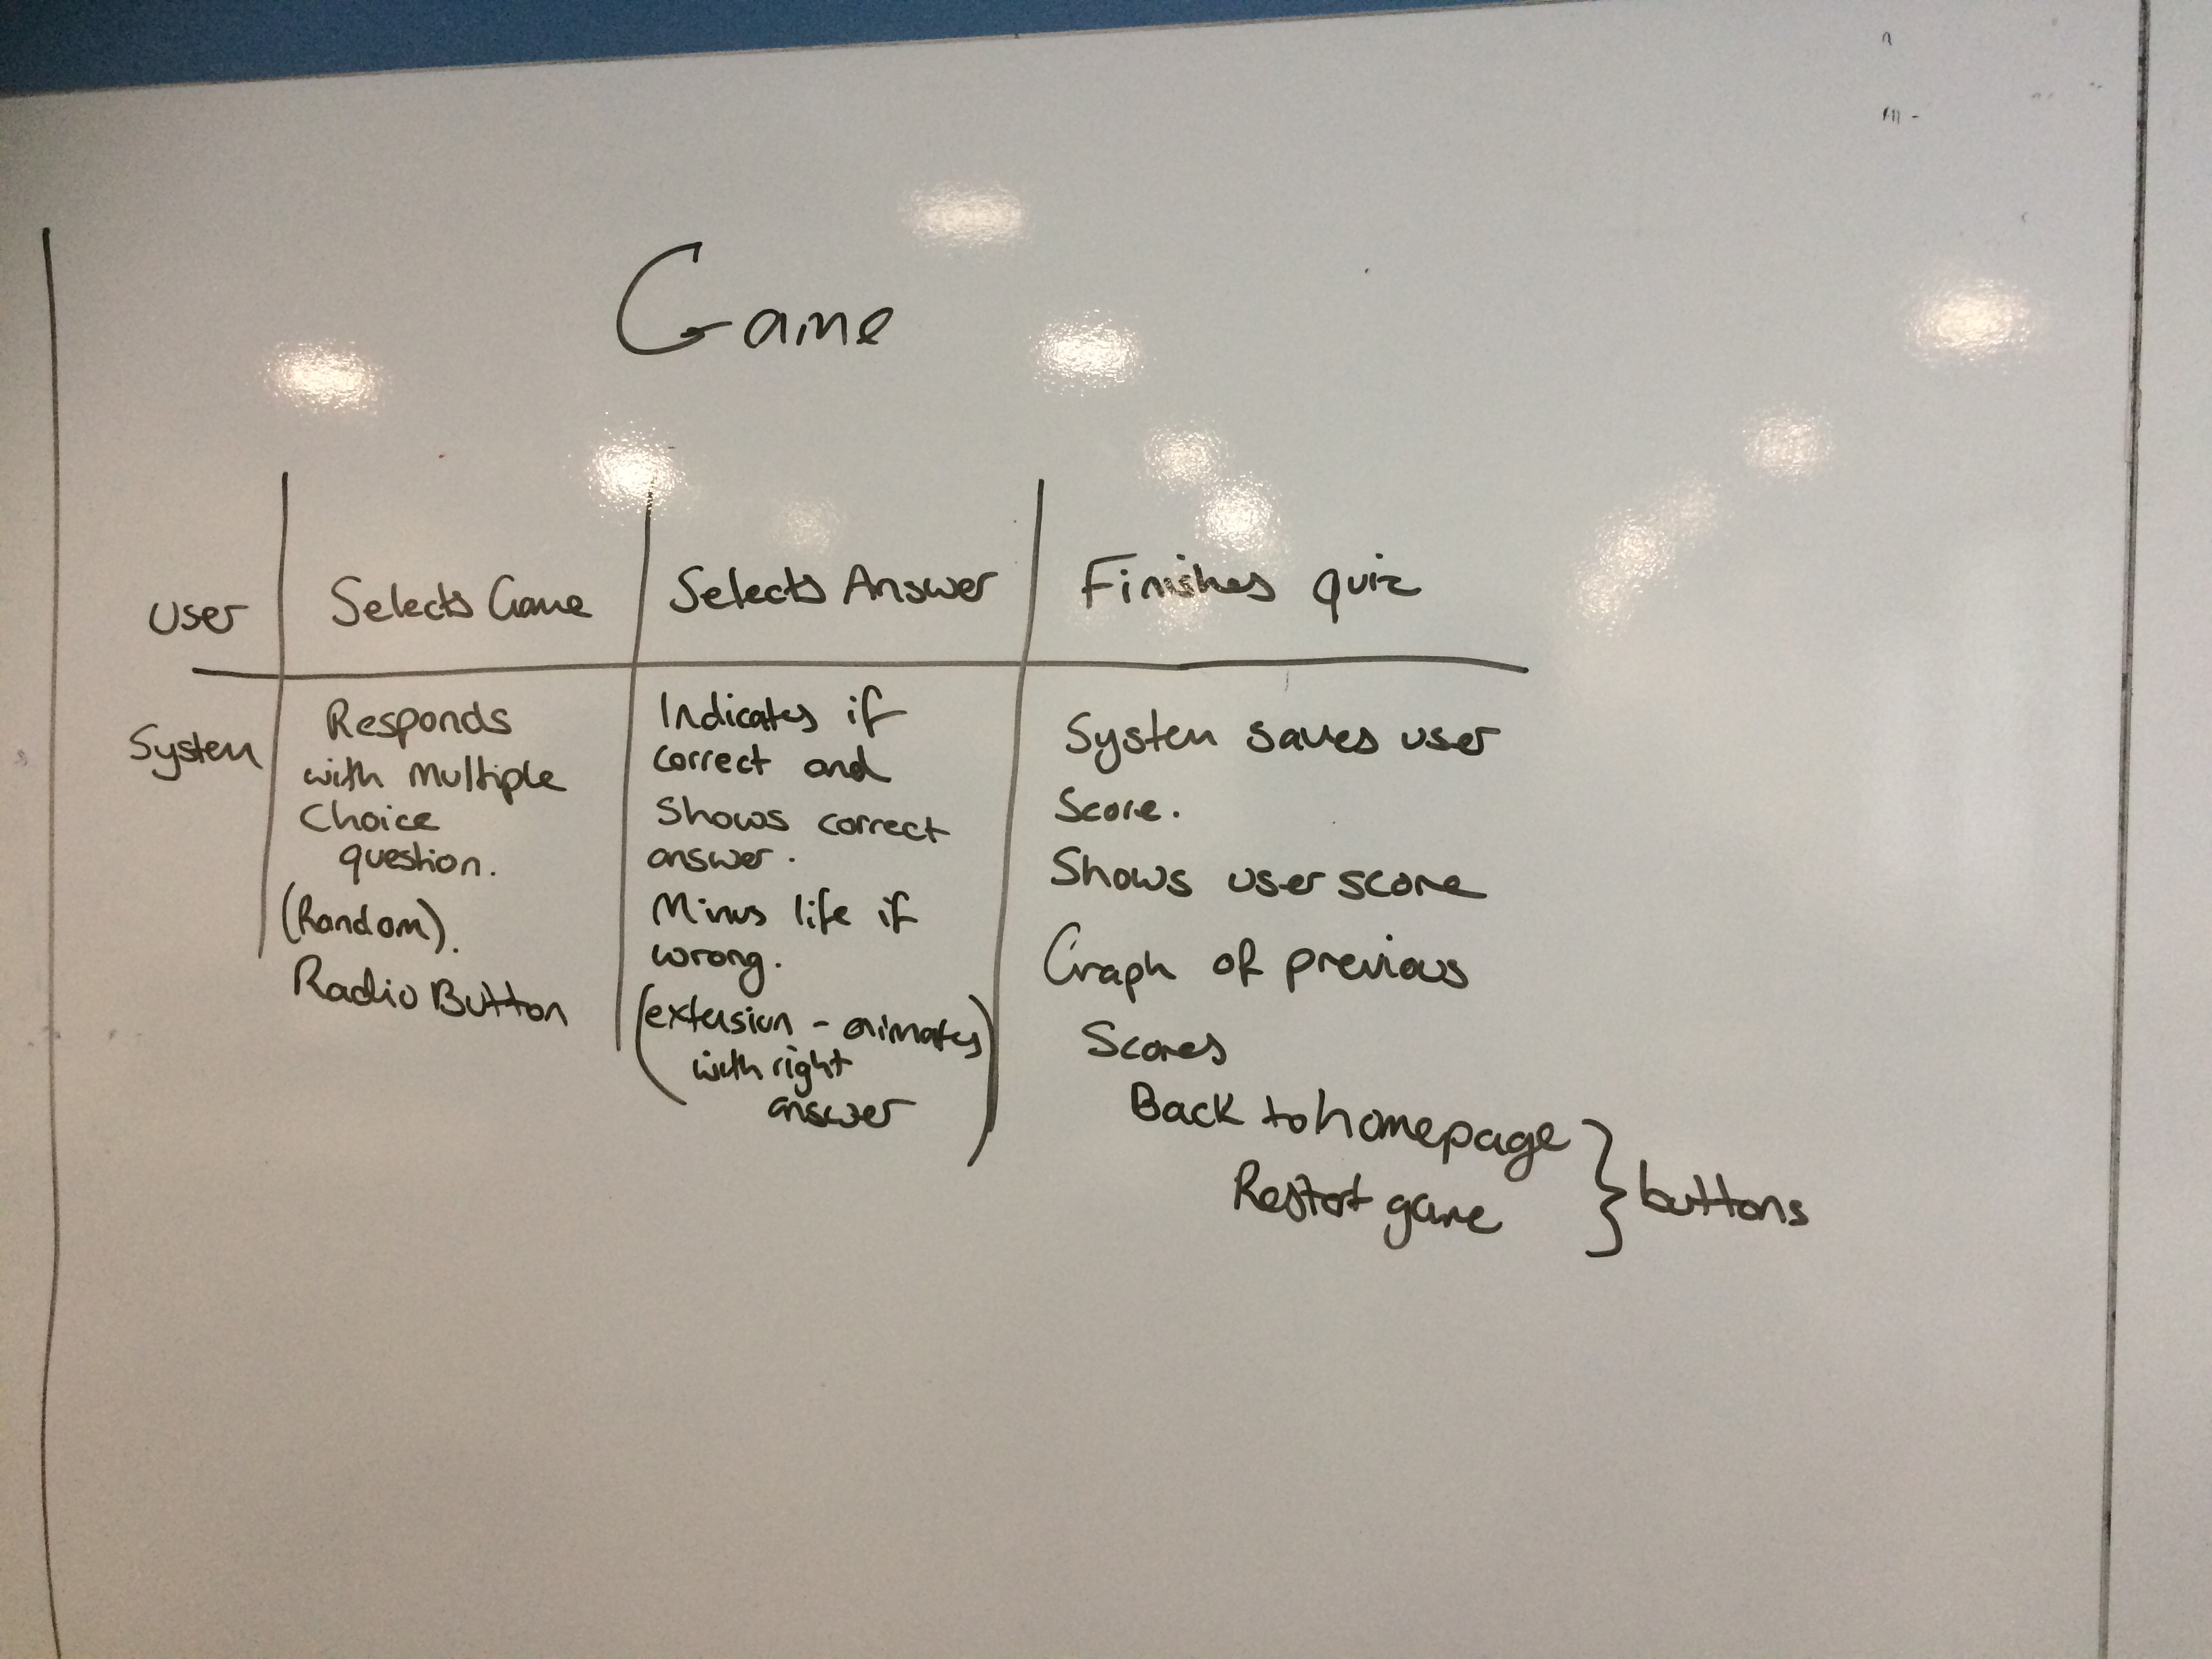 Game
User
Selects Game
Selects Answer
Finishes quiz
System
Responds
with multiple
Choice
question.
(Random).
Radio Button
Indicates if
correct and
Shows correct
answer.
Minus life if
wrong.
(extension - animates)
with right
answer
System saves user
Score.
Shows user score
Graph of previous
Scores
Back to homepage
Restart game
} buttons